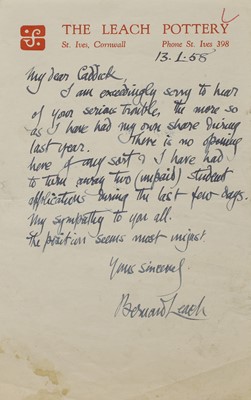 THE LEACH POTTERY
St. Ives, Cornwall Phone St. Ives 398
13.1.58
My dear Caddick,
I am exceedingly sorry to hear
of your serious trouble, the more so
as I have had my own share during
last year. There is no opening
here of any sort & I have had
to turn away two (unpaid) student
applications during the last few days.
My sympathy to you all.
The position seems most unjust.
Yours sincerely
Bernard Leach